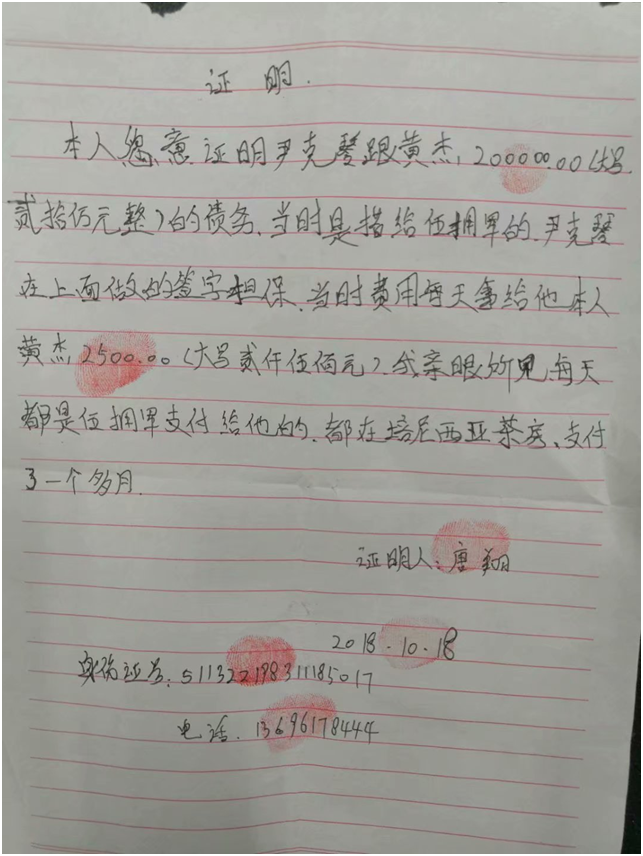 证 明.
本人愿意证明尹克琴跟黄杰,200000.00(大写
贰拾佰元整)的债务.当时是搭给伍拥军的.尹克琴
在上面做的签字担保.当时费用每天拿给他本人
黄杰,2500.00(大写贰仟伍佰元).我亲眼所见.每天
都是伍拥军支付给他的.都在培尼西亚茶房、支付
了一个多月.
证明人:唐翔
2018.10.18
身份证号:511322198311185017
电话.13696178444